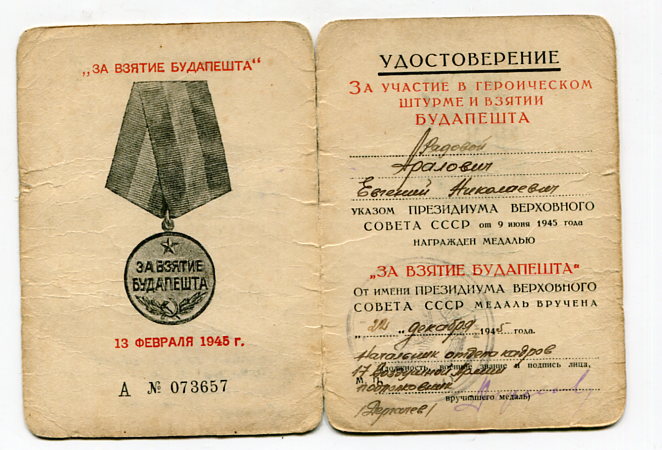 „ЗА ВЗЯТИЕ БУДАПЕШТА“
ЗА ВЗЯТИЕ
БУДАПЕШТА
13 ФЕВРАЛЯ 1945 г.
А № 073657
УДОСТОВЕРЕНИЕ
ЗА УЧАСТИЕ В ГЕРОИЧЕСКОМ
ШТУРМЕ И ВЗЯТИИ
БУДАПЕШТА
Рядовой
Аралович
Евгений Николаевич
УКАЗОМ ПРЕЗИДИУМА ВЕРХОВНОГО
СОВЕТА СССР от 9 июня 1945 года
НАГРАЖДЕН МЕДАЛЬЮ
„ЗА ВЗЯТИЕ БУДАПЕШТА“
ОТ ИМЕНИ ПРЕЗИДИУМА ВЕРХОВНОГО
СОВЕТА СССР МЕДАЛЬ ВРУЧЕНА
декабря 1945 года.
Начальник отдела кадров
17 воздушной армии
М. П. (Должность, военное звание и подпись лица,
подполковник
вручившего медаль)